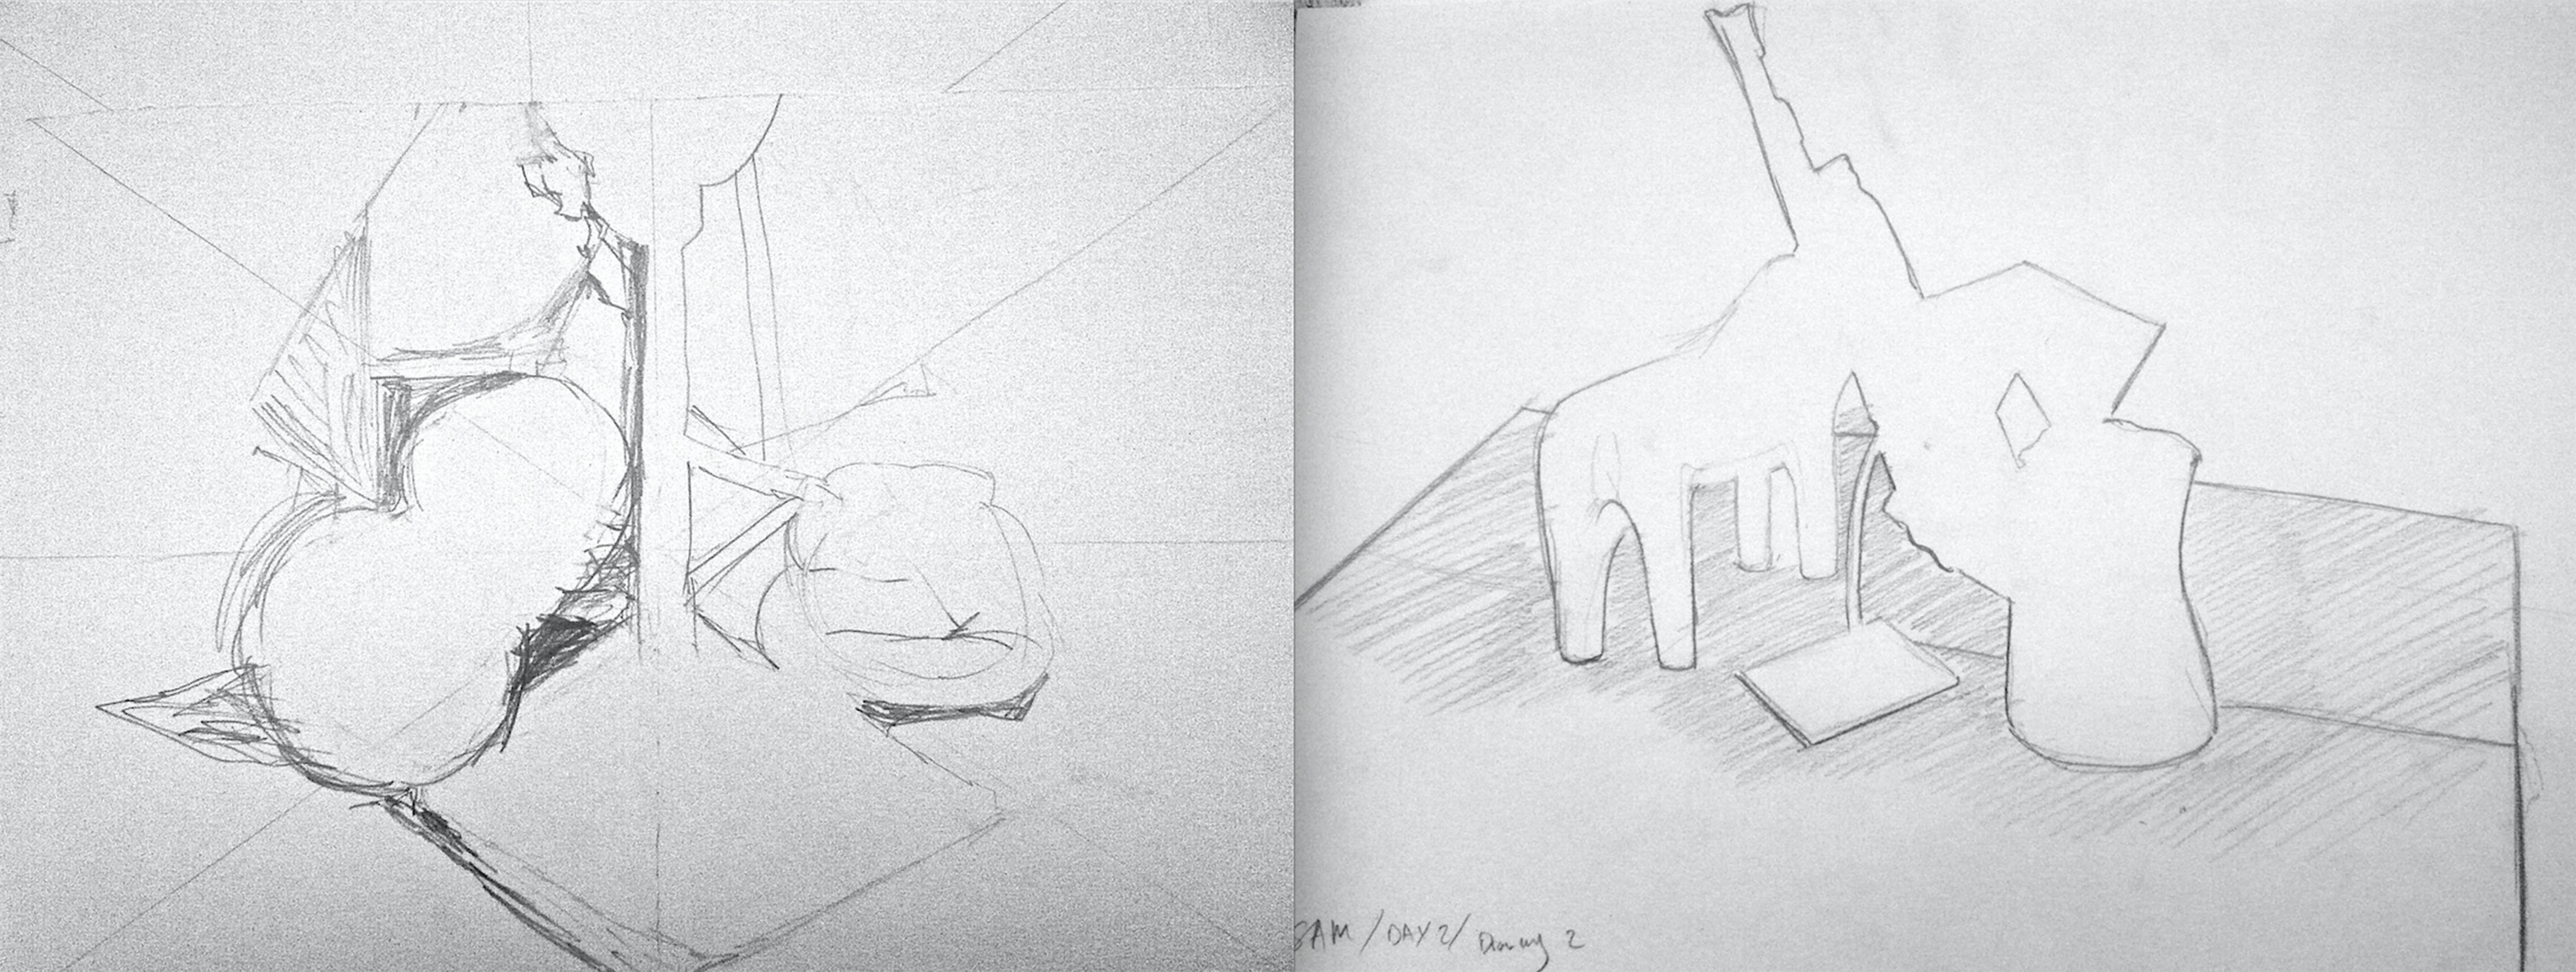 SAM / DAY 2 / Drawing 2